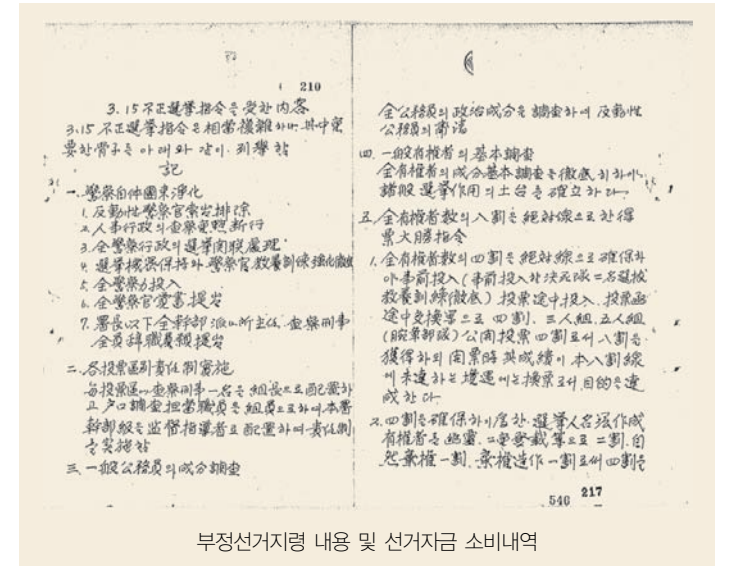 210
3.15不正選擧指令을 受한 内容
3.15不正選擧指令은 相當複雜하나 其中重
要한 骨子를 아래와 같이 列擧함
記
一. 警察自体團束淨化
1. 反動性警察官索出排除
2. 人事行政의 査察重点断行
3. 全警察行政의 選擧関聯處理
4. 選擧機密保持와 警察官教養訓練強化徹底
5. 全警察力投入
6. 全警察官 書提出
7. 署長以下全幹部派出所主任 査察刑事
全員辞職願提出
二. 各投票區別責任制實施
每投票區에 査察刑事一名을 組長으로 配置하
고 戶口調査担當職員을 組員으로하며 本署
幹部級을 監督指導者로 配置하여 責任制
를 実施함
三. 一般公務員의 成分調査
全公務員의 政治成分을 調査하여 反動性
公務員의 肅淸
四. 一般有権者의 基本調査
全有権者의 成分基本調査를 徹底히하여
諸般選擧作用의 土台를 確立하라
五. 全有権者数의 八割을 絶対線으로한 得
票大勝指令
1. 全有権者数의 四割을 絶対線으로 確保하
야 事前投入(事前投入対決死隊二名選拔
教養訓練徹底) 投票途中投入. 投票函
途中交換等으로 四割. 三人組. 五人組
(腕章部隊) 公開投票四割로서 八割을
獲得하되 開票時 其成績이 本八割線
에 未達하는 境遇에는 換票로서 目的을 達
成한다.
2. 四割을 確保하기 爲한 選擧人名簿作成
有権者를 幽靈. 二重登載等으로 二割. 自
然棄権一割. 棄権造作一割로써 四割을
546 217
부정선거지령 내용 및 선거자금 소비내역